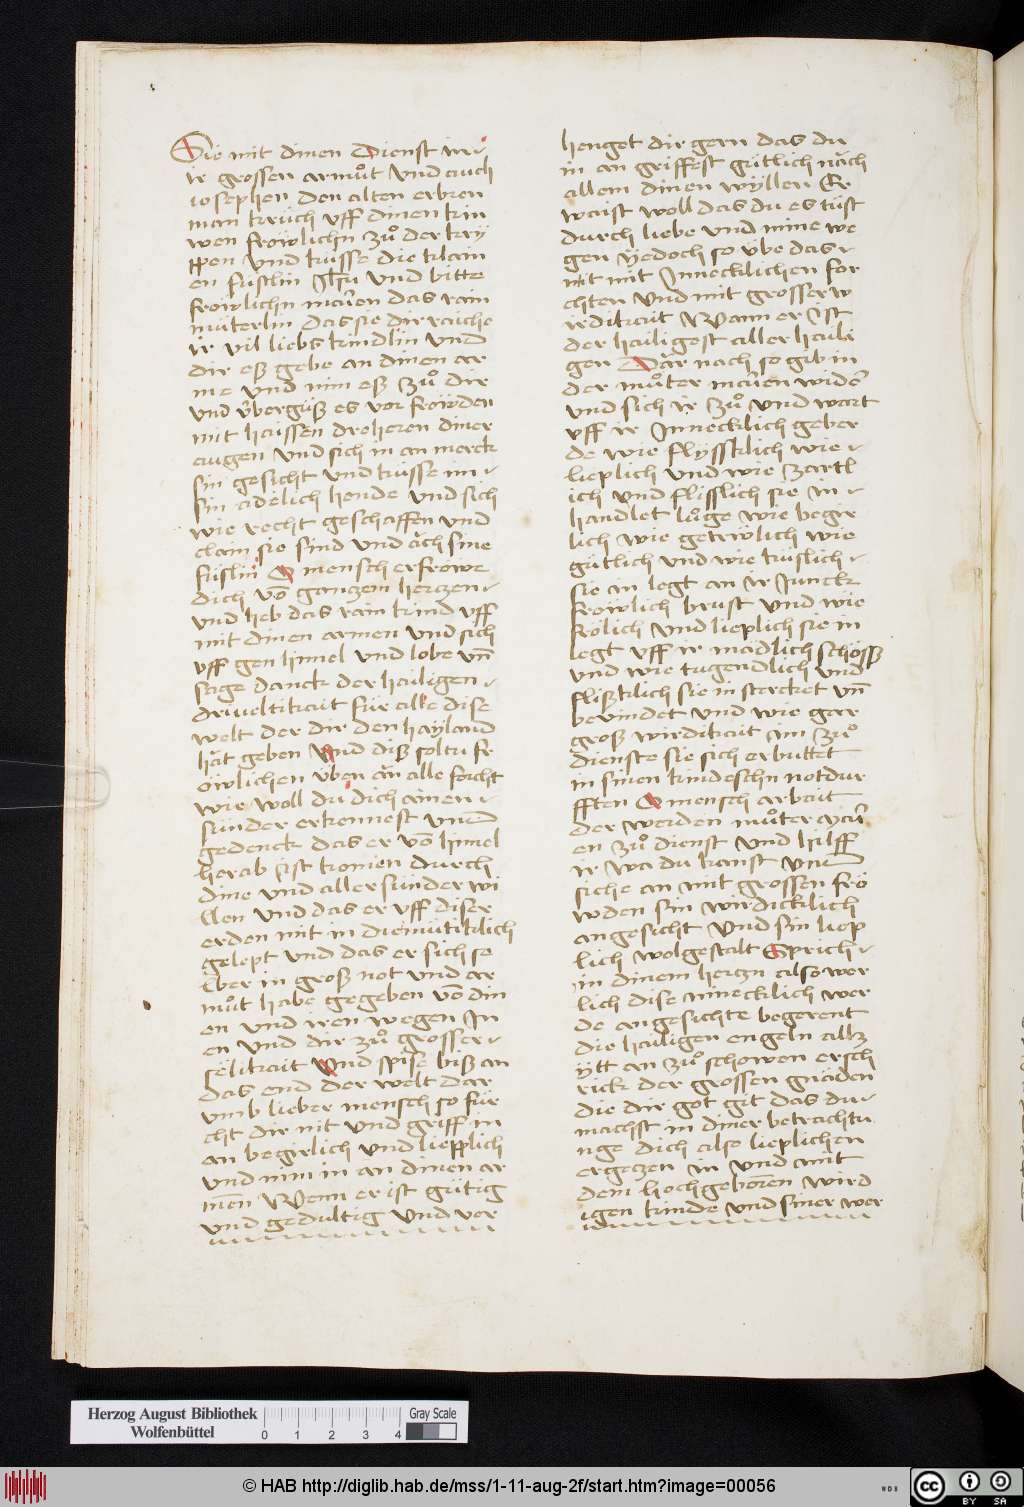 Sie mit dinen Dienst in
ir grossen armůt Vnd auch
iosephen den alten erbren
man kruch vff dinen knu
wen fröwlichn zů der kry
ppen Vnd kusse die klain
en füslin Jhsu Vnd bitte
fröwlichn marien das rain
müterlin das sie dir raiche
ir vil liebs kindlin Vnd
dir eß gebe an dinen ar
me Vnd nim eß zů dir
Vnd vbergüß es vor fröwden
mit haissen drehern diner
augen Vnd sich in an merck
sin gesicht Vnd kusse im
sin adelich hende Vnd sich
wie recht geschaffen Vnd
clain sie sind Vnd ăch sine
füslin O mensch erfröwe
dich vō gantzem hertzen
Vnd heb das rain kind vff
mit dinen armen Vnd sich
vff gen himel Vnd lobe vn̄
sage danck der hailigen
driueltikait für alle dise
welt der dir den hayland
hăt geben Vnd diß soltu fr
öwlichen vben ăn alle forcht
wie woll du dich ainen
sünder erkennest Vnd
gedenck das er vō himel
herab ist komen durch
dine Vnd aller sünder wi
llen Vnd das er vff diser
erden mit in diemütiklich
gelept Vnd das er sich se
lber in groß not Vnd ar
můt habe gegeben vō din
en Vnd iren wegen Jn
en Vnd dir zů grosser
selikait Vnd spise biß an
das end der welt dar
vmb lieber mensch so für
cht dir nit Vnd griff in
an begirlich Vnd liepplich
Vnd nim in an dinen ar
men Wenn er ist gütig
Vnd gedultig Vnd ver
henget dir gern das du
in an griffest gütlich năch
allem dinen wyllen Er
waist woll das du es tüst
durch liebe Vnd mine we
gen yedoch so übe das
nit mit Jnnecklichen for
chten Vnd mit grosser w
irdikait Wann er ist
der hailigest aller haili
gen Dăr nach so gib in
der můter marien wider
Vnd sich ir zů Vnd wart
vff ir Jnnecklich geber
de wie flyssklich wie
lieplich Vnd wie zartl
ich Vnd flisslich sie in
handlet lůge wie begir
lich wie getrwlich wie
gütlich Vnd wie küslich
sie in legt an ir Junck
fröwlich brust Vnd wie
frölich Vnd lieplich sie in
legt vff ir mädlich schöss
Vnd wie tugendlich Vnd
flißklich sie in stercket vn̄
bewindet Vnd wie gar
groß wirdikait im zů
dienste sie sich erbuttet
in sinen kindeschn notdur
fften O mensch arbait
der werden můter mari
en zů dienst Vnd hilff
ir wa du kanst Vnd
siche an mit grossen frö
wden sin wirdicklich
angesicht Vnd sin liep
lich wolgestalt Sprich
in dinem hertzn also wer
lich dise minecklich wer
de angesichte begerent
die hailigen engeln allz
ytt an zů schowen ersch
rick der grossen gnăden
die dir got git das du
machst in diner betrachtu
nge dich also lieplichen
ergezen in Vnd mit
dem hochgeboren wird
igen kinde Vnd siner wer
Herzog August Bibliothek
Wolfenbüttel
0 1 2 3 4
Gray Scale
© HAB http://diglib.hab.de/mss/1-11-aug-2f/start.htm?image=00056
WDB
CC BY SA